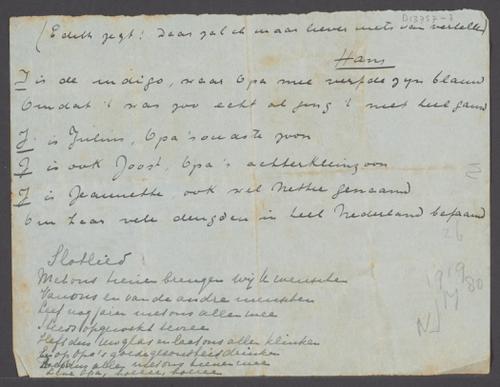 D13757-3
(Edith zegt: Daar zal ik maar liever niets van vertellen)
Hans
I is de indigo, waar Opa mee verfde zijn blauw
Omdat 't was zoo echt al ging 't niet heel gauw
J is Julius, Opa's oudste zoon
J is ook Joost, Opa's achterkleinzoon
J is Jeannette, ook wel Nettie genaamd
Om haar vele deugden in heel Nederland befaamd
26
Slotlied
Met ons brengen wij k wenschen
Van ons en van de andere menschen
Leef nog jaren met ons allen mee
Steeds opgewekt tevree
Heft dus Uw glas en laat ons allen klinken
En op Opa's goede gezondheid drinken
allen met ons mee
Opa,
1919
M 80
N